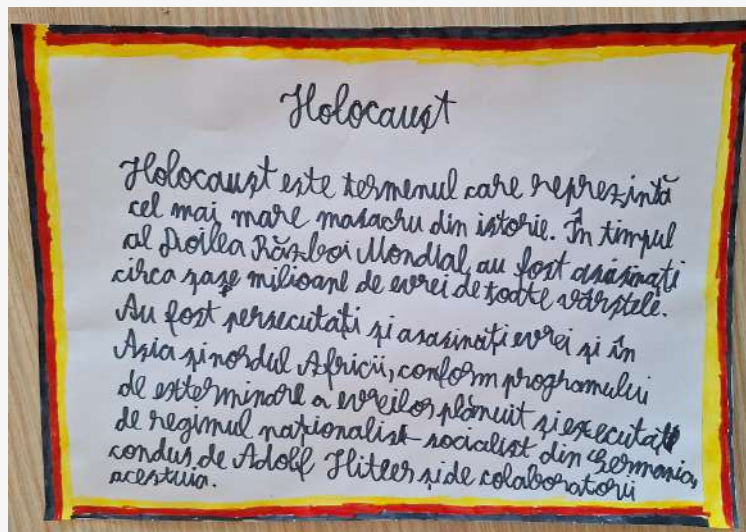 Holocaust
Holocaust este termenul care reprezintă
cel mai mare masacru din istorie. În timpul
al Doilea Război Mondial, au fost asasinați
circa șase milioane de evrei de toate vârstele.
Au fost persecutați și asasinați evrei și în
Asia și nordul Africii, conform programului
de exterminare a evreilor plănuit și executat
de regimul naționalist-socialist din Germania,
condus de Adolf Hitler și de colaboratorii
acestuia.